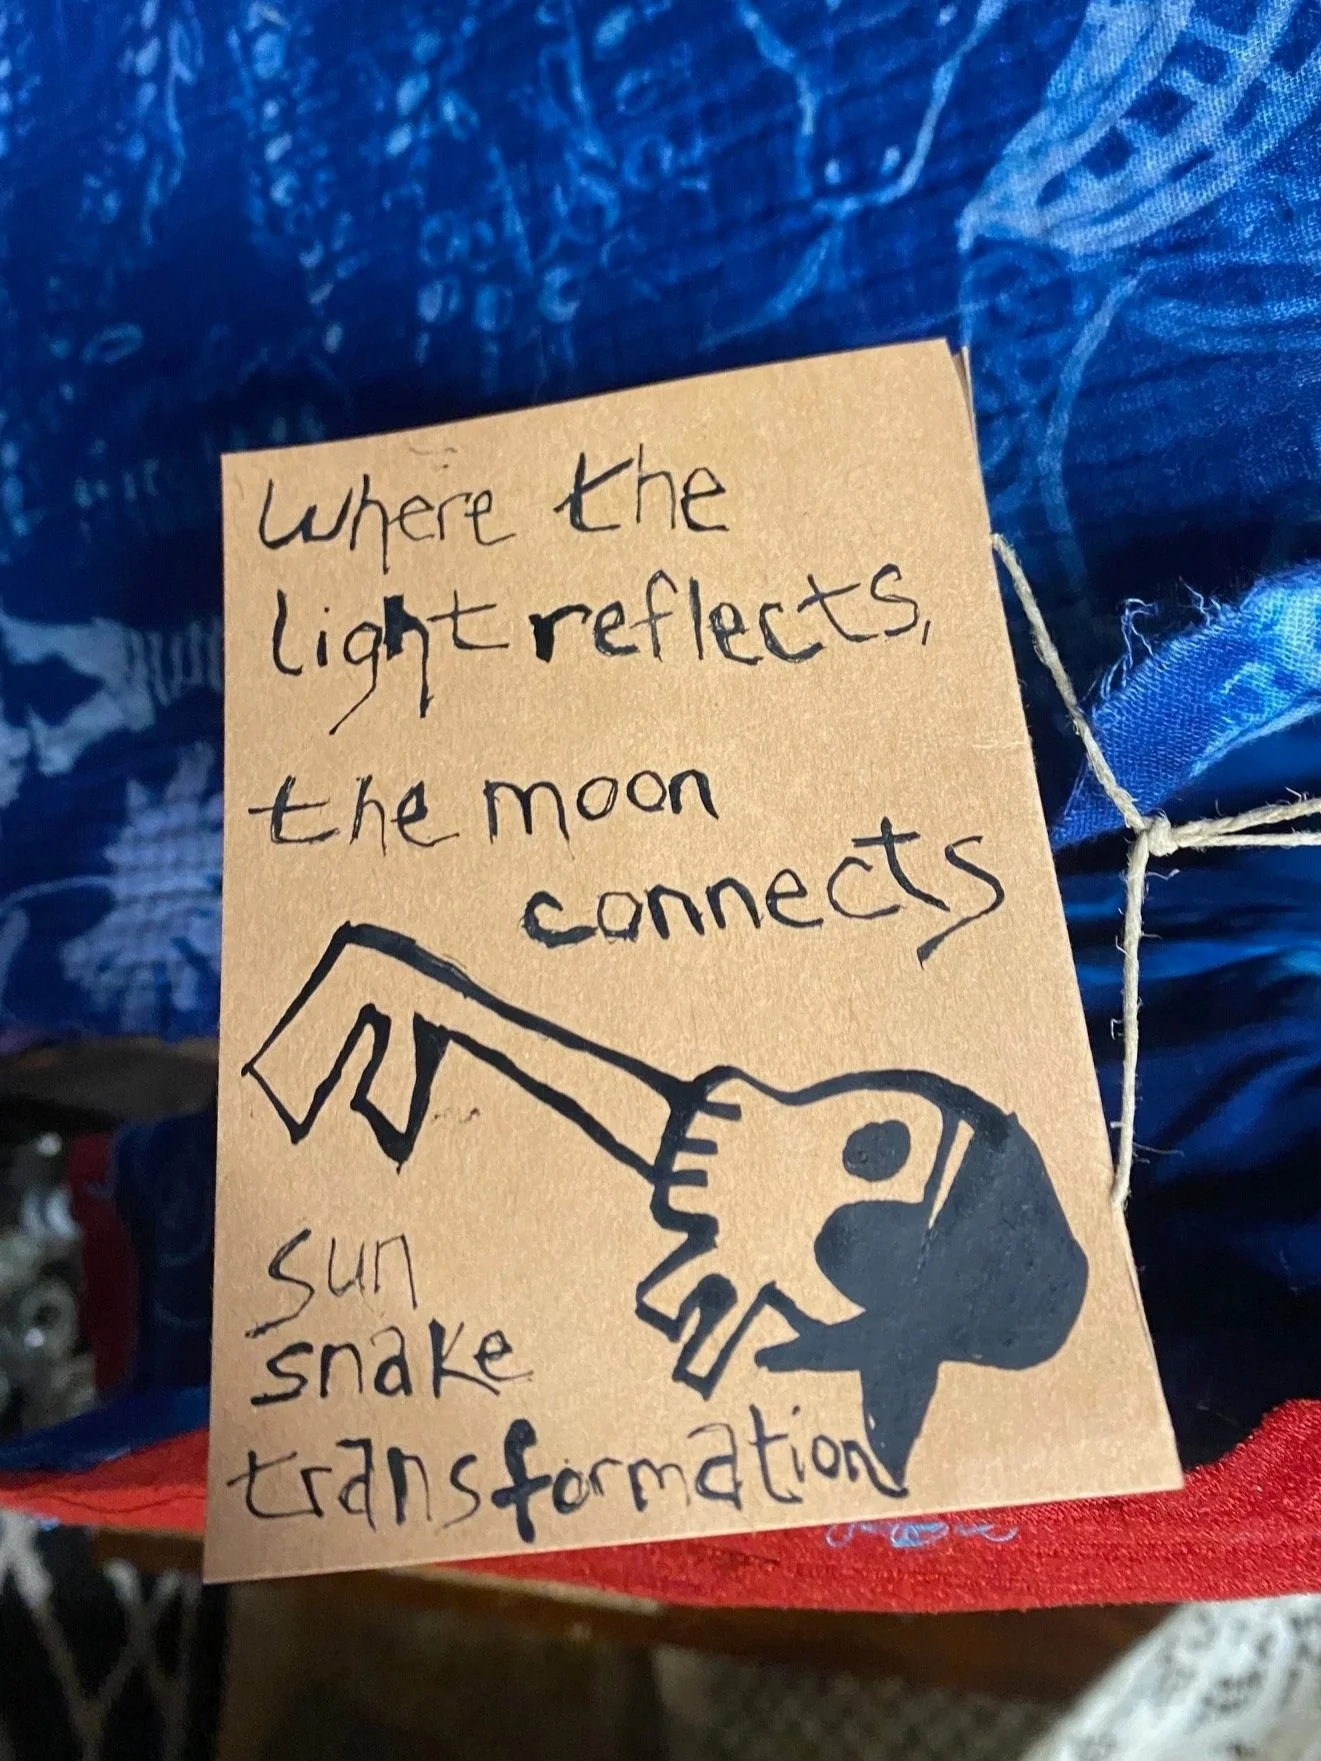 Where the
light reflects,
the moon
connects
sun
snake
transformation